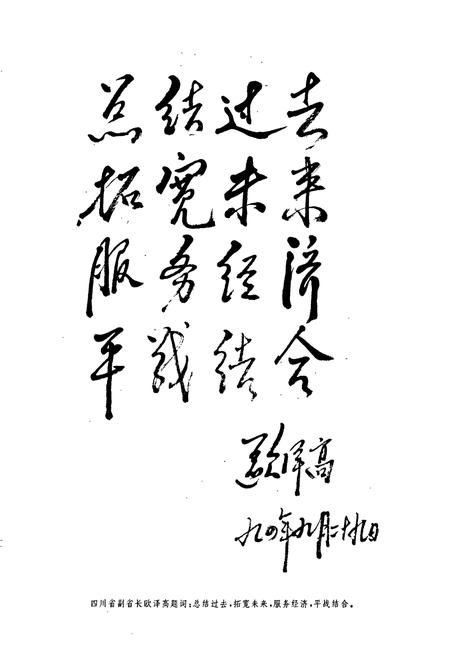 总结过去
拓宽未来
服务经济
平战结合
欧泽高
九四年九月二十九日
四川省副省长欧泽高题词:总结过去,拓宽未来,服务经济,平战结合。